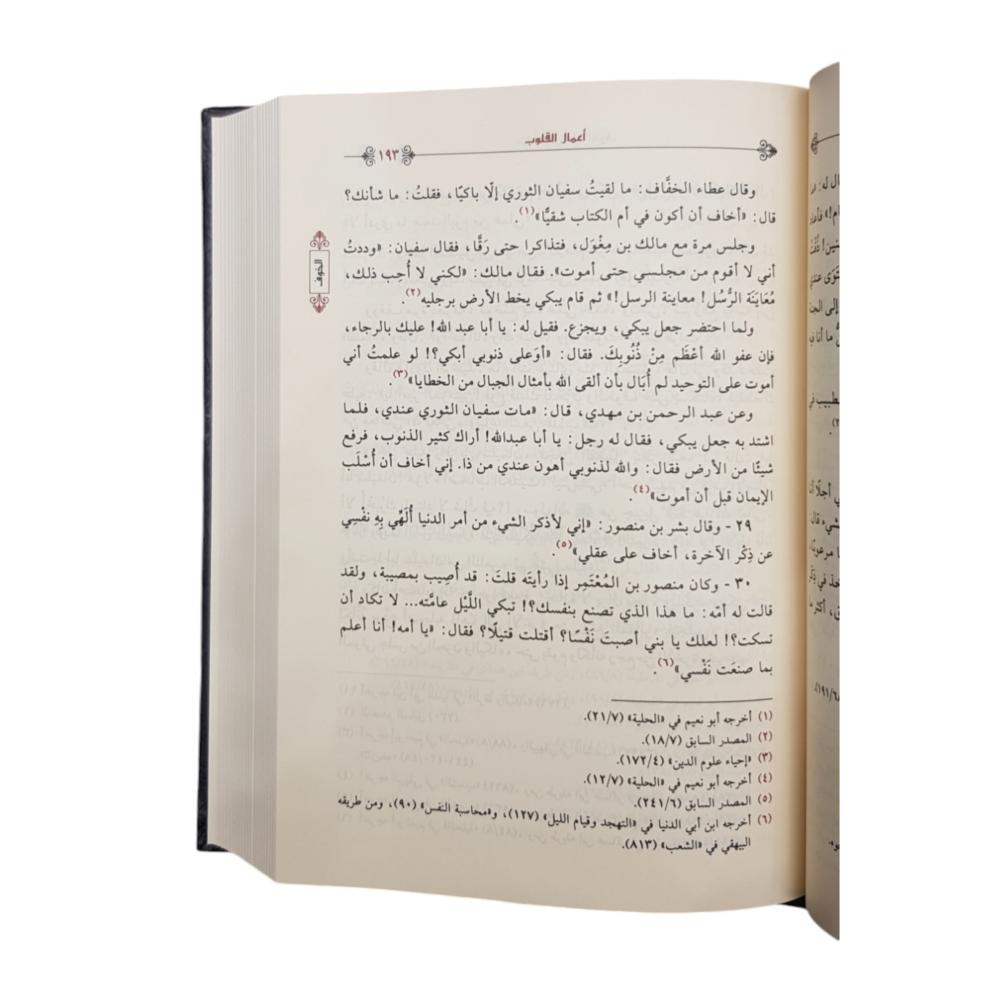 أعمال القلوب
١٩٣
الخوف
وقال عطاء الخفَّاف: ما لقيتُ سفيان الثوري إلّا باكيًا، فقلتُ: ما شأنك؟
قال: «أخاف أن أكون في أم الكتاب شقيًّا»(١).
وجلس مرة مع مالك بن مِغْوَل، فتذاكرا حتى رَقَّا، فقال سفيان: «وددتُ
أني لا أقوم من مجلسي حتى أموت». فقال مالك: «لكني لا أُحِب ذلك،
مُعَايَنَة الرُّسُل! معاينة الرسل!» ثم قام يبكي يخط الأرض برجليه(٢).
ولما احتضر جعل يبكي، ويجزع. فقيل له: يا أبا عبد الله! عليك بالرجاء،
فإن عفو الله أعْظَم مِنْ ذُنُوبِكَ. فقال: «أوَعلى ذنوبي أبكي؟! لو علمتُ أني
أموت على التوحيد لم أُبَال بأن ألقى الله بأمثال الجبال من الخطايا»(٣).
وعن عبد الرحمن بن مهدي، قال: «مات سفيان الثوري عندي، فلما
اشتد به جعل يبكي، فقال له رجل: يا أبا عبدالله! أراك كثير الذنوب، فرفع
شيئًا من الأرض فقال: والله لذنوبي أهون عندي من ذا. إني أخاف أن أُسْلَب
الإيمان قبل أن أموت»(٤).
٢٩ - وقال بشر بن منصور: «إني لأذكر الشيء من أمر الدنيا أُلَهِّي بِهِ نفْسِي
عن ذِكْر الآخرة، أخاف على عقلي»(٥).
٣٠ - وكان منصور بن المُعْتَمِر إذا رأيتَه قلتَ: قد أُصِيب بمصيبة، ولقد
قالت له أمّه: ما هذا الذي تصنع بنفسك؟! تبكي اللَّيْل عامَّته... لا تكاد أن
تسكت؟! لعلك يا بني أصبتَ نَفْسًا؟ أقتلت قتيلًا؟ فقال: «يا أمه! أنا أعلم
بما صنعَت نَفْسي»(٦).
(١) أخرجه أبو نعيم في «الحلية» (٢١/٧).
(٢) المصدر السابق (١٨/٧).
(٣) «إحياء علوم الدين» (١٧٢/٤).
(٤) أخرجه أبو نعيم في «الحلية» (١٢/٧).
(٥) المصدر السابق (٢٤١/٦).
(٦) أخرجه ابن أبي الدنيا في «التهجد وقيام الليل» (١٢٧)، و«محاسبة النفس» (٩٠)، ومن طريقه
البيهقي في «الشعب» (٨١٣).